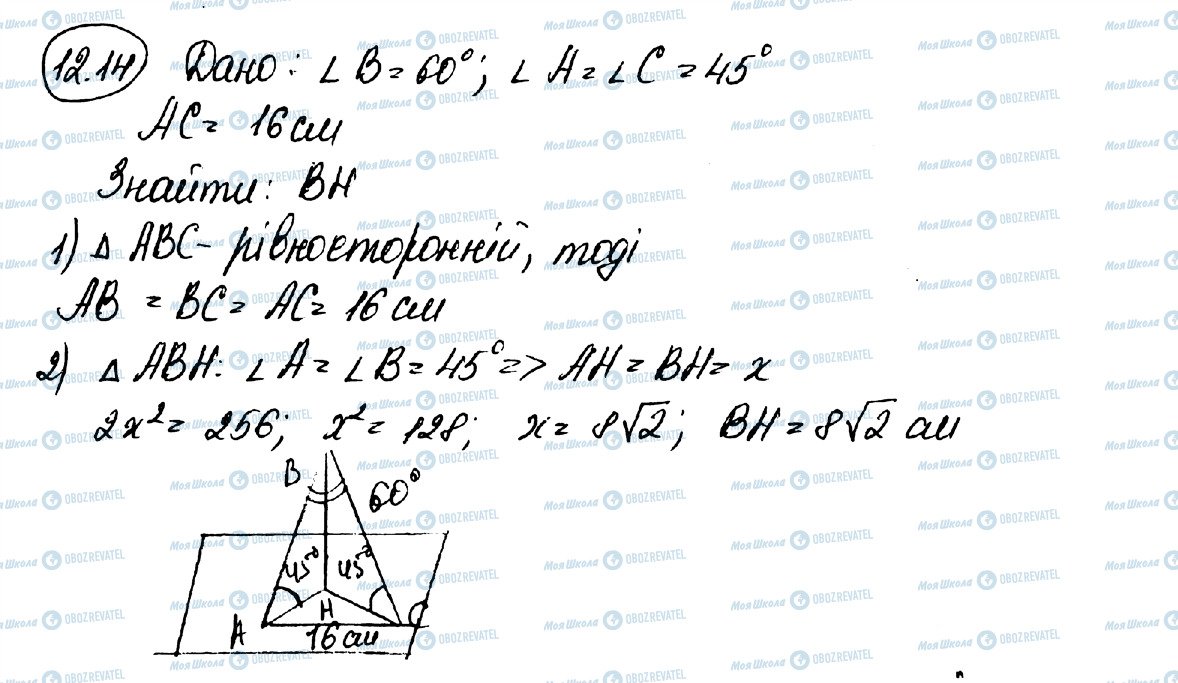 12.14 Дано: ∠ B = 60°; ∠ A = ∠ C = 45°
AC = 16 см
Знайти: BH
1) △ ABC - рівносторонній, тоді
AB = BC = AC = 16 см
2) △ ABH: ∠ A = ∠ B = 45° => AH = BH = x
2x² = 256; x² = 128; x = 8√2; BH = 8√2 см
B 60°
45° 45°
A H C
16 см